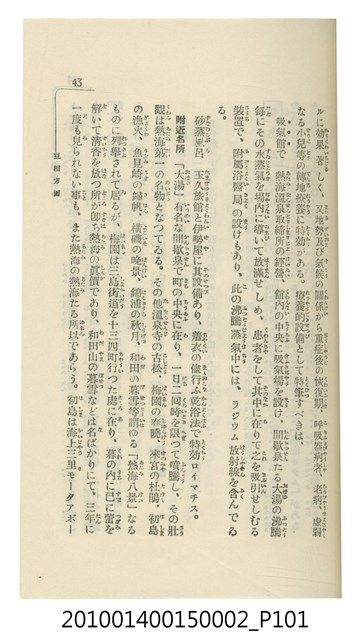 43
豆相方面
ルに効果著しく、又地勢及び氣候の關係から重症後の恢復期、呼吸器病者、老病、虛弱
なる小兒等の轉地療養に特効がある。療養的設備として特筆すべきは、
吸氣館で　熱海溫泉取締所の經營、館内の中央に吸氣場を設け、間歇泉たる大湯の沸騰
毎にその水蒸氣を場内に導いて放滿せしめ、患者をして其中に在りて之を吸引せしむる
裝置で、附屬浴醫局の設けもあり、此の沸騰蒸氣中には、ラジウム放射線を含んでゐ
る。
砂蒸風呂　玉久旅館と伊勢屋に其設備あり、着衣の儘行ふ乾浴法で特効ロイマチス。
附近名所　「大湯」有名な間歇泉で町の中央に在り、一日二回時を限つて噴騰し、その壯
觀は熱海第一の名物となつてゐる。その他溫泉寺の古松、梅園の春曉、來宮の杜鵑、初島
の漁火、魚見崎の歸帆、橫磯の晚景、錦浦の秋月、和田の暮雪等謂ゆる「熱海八景」なる
ものに列擧されて居るが、梅園は三島街道を十三四町行つた處に在り、暮の内に已に蕾を
解いて淸香を放つ所が卽ち熱海の眞價であり、和田山の暮雪などは名ばかりにて、三年に
一度も見られない事も、また熱海の熱海たる所以であらう。初島は海上三里モータアボー
201001400150002_P101